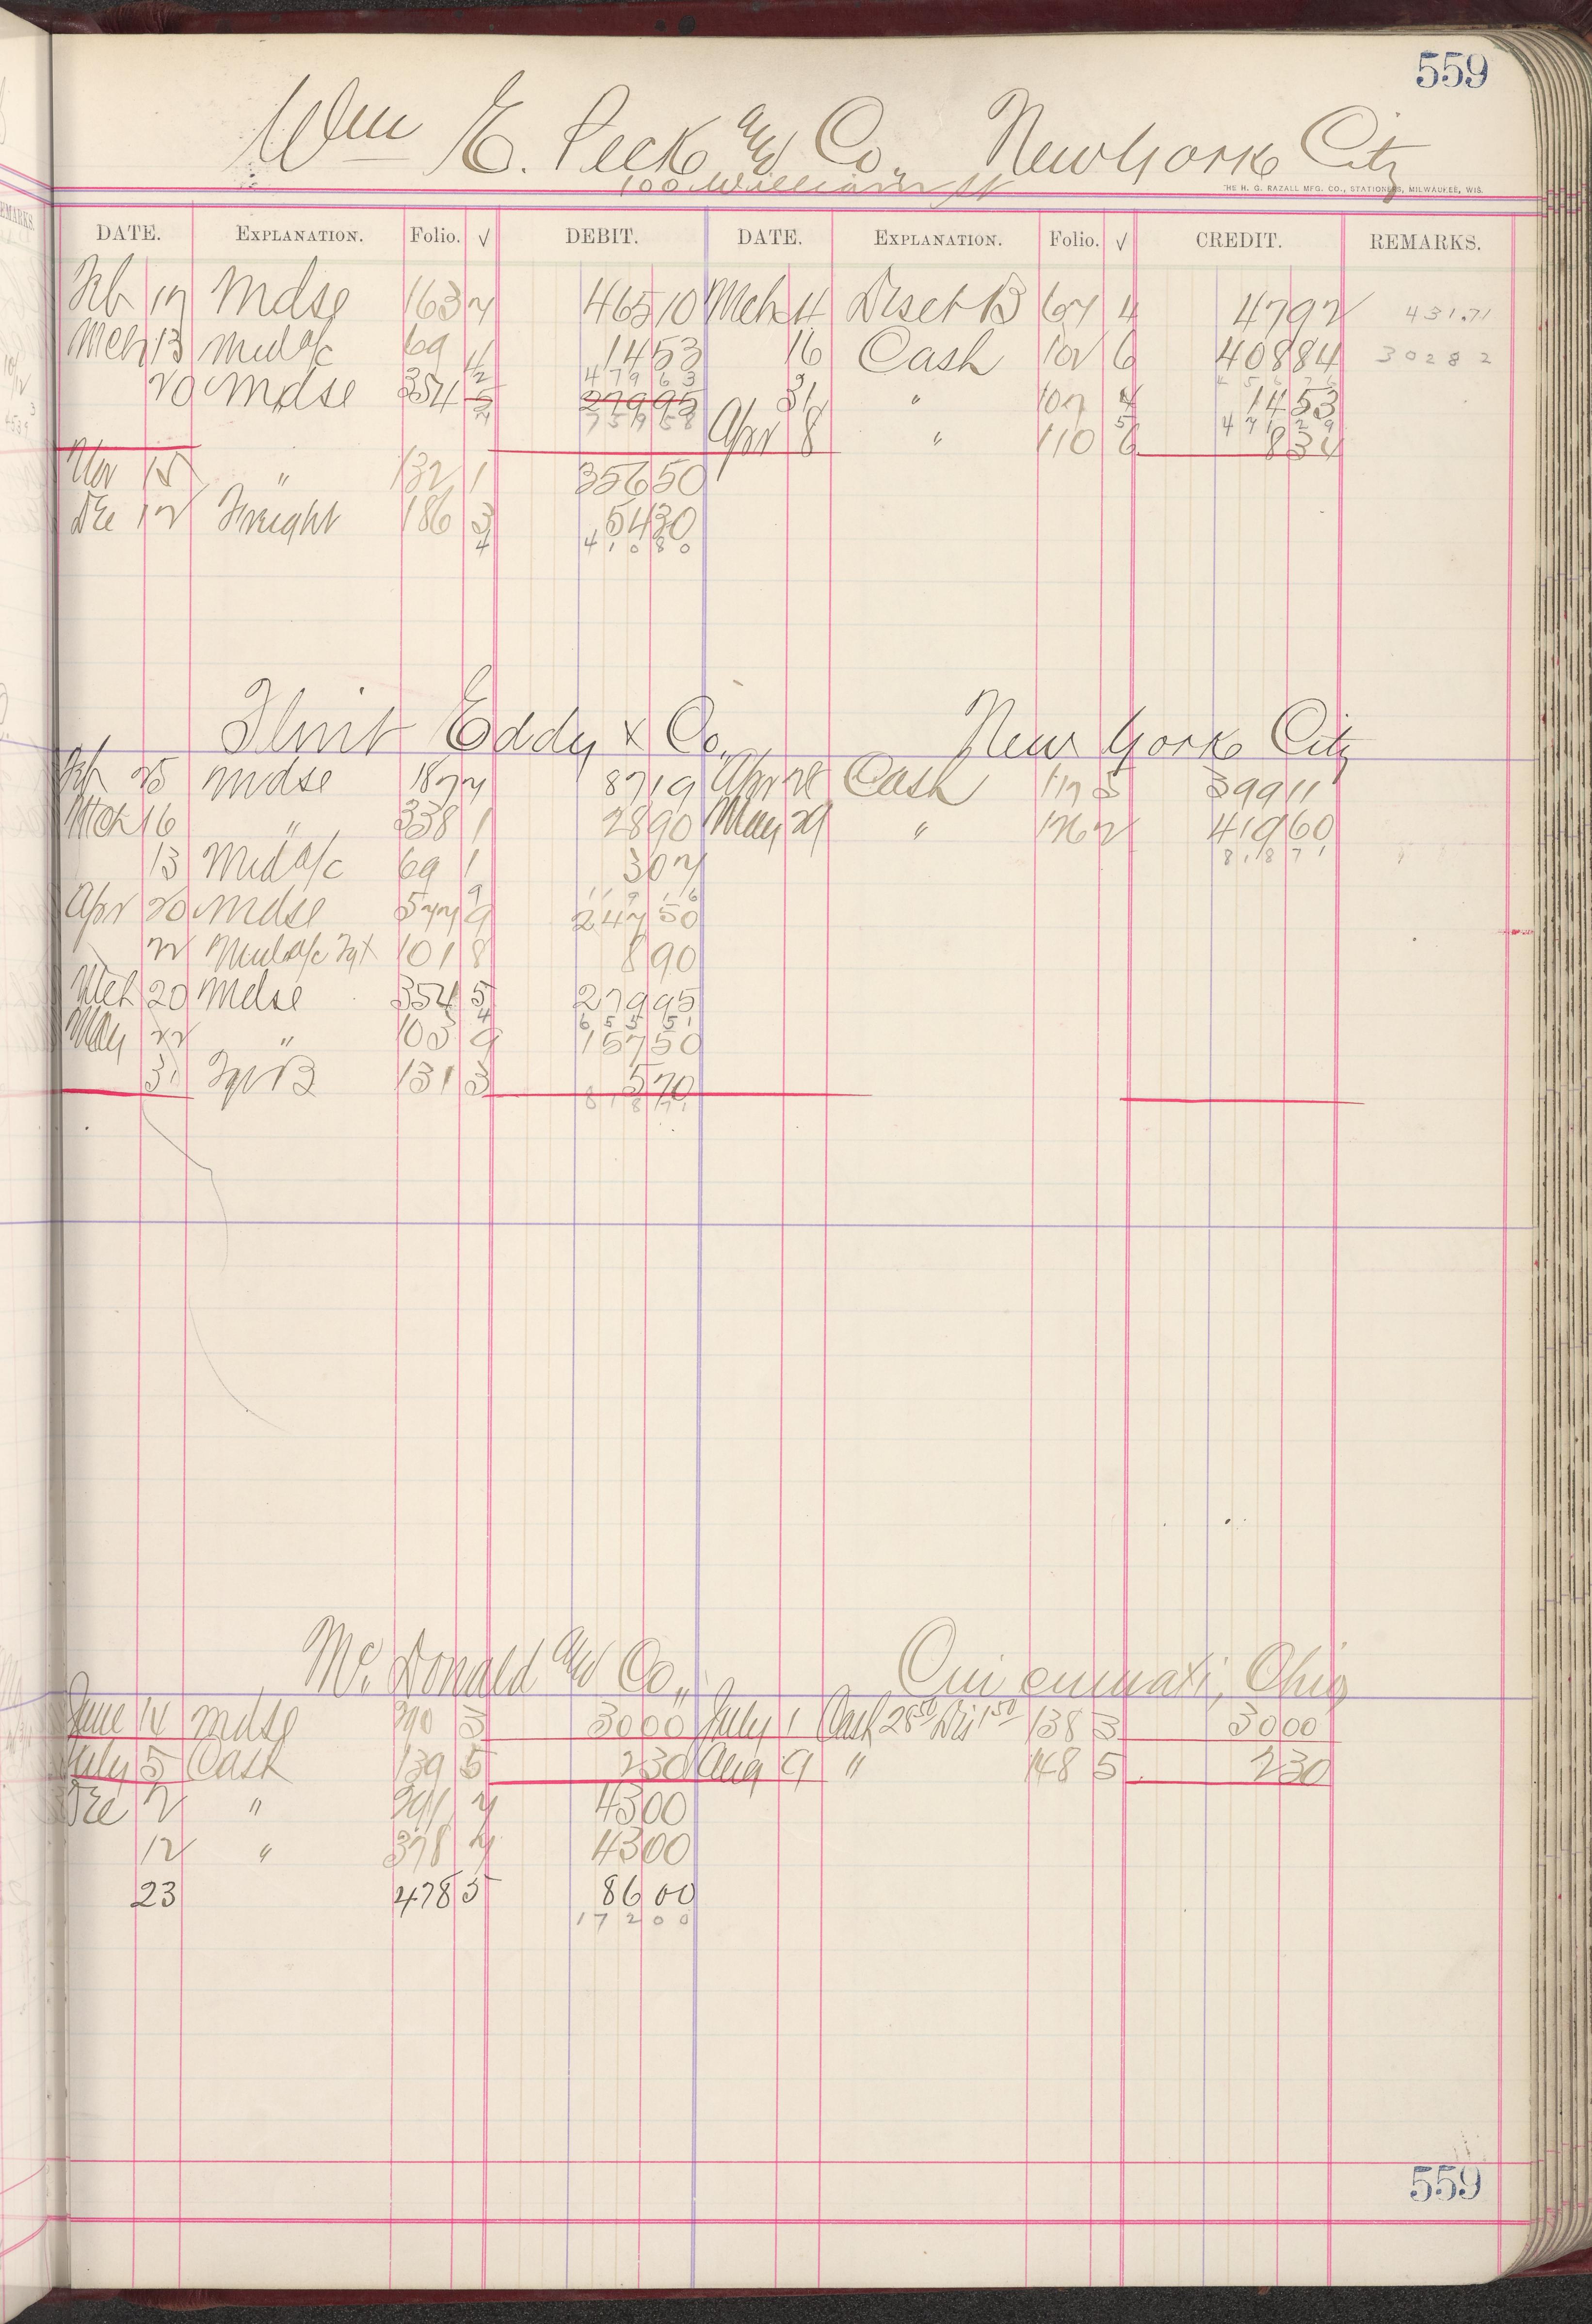 559
Wm E. Peck and Co., New York City
100 William St
THE H. G. RAZALL MFG. CO., STATIONERS, MILWAUKEE, WIS.
DATE. EXPLANATION. Folio. √ DEBIT. DATE. EXPLANATION. Folio. √ CREDIT. REMARKS.
Feb 17 Mdse 163 7 465 10 Mch 4 Disct B 67 4 47 92 431.71
Mch 13 Mdse a/c 69 4 14 53 16 Cash 102 6 408 84 302 82
479 63
20 Mdse 354 5 279 95 31 " 107 4 14 53
759 58 471 29
Apr 8 " 110 6 8 34
Nov 15 " 132 1 356 50
Dec 12 Freight 186 3 54 30
4 410 80
Flint Eddy & Co. New York City
Feb 25 Mdse 187 7 87 19 Apr 28 Cash 117 5 399 11
Mch 16 " 338 1 28 90 May 29 " 126 2 419 60
818 71
13 Mdse a/c 69 1 3 07
9 119 16
Apr 20 Mdse 577 9 247 50
22 Mdse a/c Fgt 101 8 8 90
Mch 20 Mdse 354 5 279 95
4 655 51
May 22 " 103 9 157 50
31 Fgt B 131 3 5 70
818 71
Mc. Donald and Co., Cincinnati, Ohio
June 14 Mdse 290 3 30 00 July 1 Cash 28 50 Dis 1 50 138 3 30 00
July 5 Cash 139 5 2 30 Aug 9 " 148 5 2 30
Dec 2 " 291 7 43 00
12 " 378 7 43 00
23 478 5 86 00
172 00
559